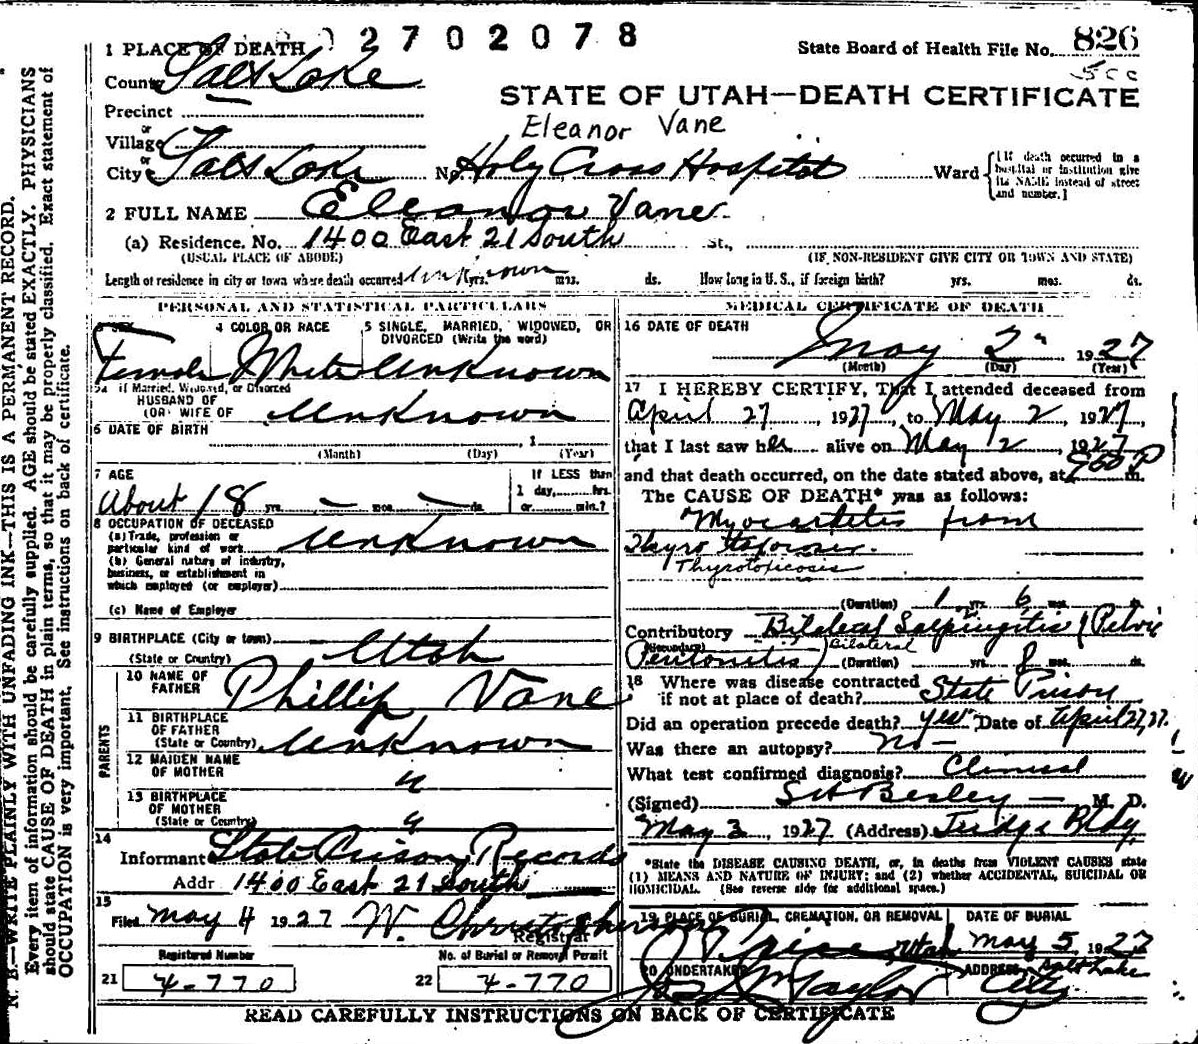 2702078
1 PLACE OF DEATH
State Board of Health File No. 826
County Salt Lake
5 c c
STATE OF UTAH—DEATH CERTIFICATE
Precinct
Eleanor Vane
or
Village
or
City Salt Lake No. Holy Cross Hospital Ward [If death occurred in a hospital or institution give its NAME instead of street and number.]
2 FULL NAME Eleanor Vane
(a) Residence. No. 1400 East 21 South St.,
(USUAL PLACE OF ABODE) (IF NON-RESIDENT GIVE CITY OR TOWN AND STATE)
Length of residence in city or town where death occurred unknown yrs. mos. ds. How long in U. S., if foreign birth? yrs. mos. ds.
PERSONAL AND STATISTICAL PARTICULARS
3 SEX 4 COLOR OR RACE 5 SINGLE, MARRIED, WIDOWED, OR
DIVORCED (Write the word)
Female White Unknown
5a If Married, Widowed, or Divorced
HUSBAND OF
(OR) WIFE OF Unknown
6 DATE OF BIRTH , 1
(Month) (Day) (Year)
7 AGE If LESS than
1 day, hrs.
About 18 yrs. — mos. — ds. or min.?
8 OCCUPATION OF DECEASED
(a) Trade, profession or
particular kind of work Unknown
(b) General nature of industry,
business, or establishment in
which employed (or employer)
(c) Name of Employer
9 BIRTHPLACE (City or town)
(State or Country) Utah
PARENTS
10 NAME OF
FATHER Phillip Vane
11 BIRTHPLACE
OF FATHER
(State or Country) Unknown
12 MAIDEN NAME
OF MOTHER "
13 BIRTHPLACE
OF MOTHER
(State or Country) "
14
Informant State Prison Records
Addr 1400 East 21 South
15
Filed May 4 1927 W. Christopherson
Registrar
Registered Number No. of Burial or Removal Permit
21 4-770 22 4-770
MEDICAL CERTIFICATE OF DEATH
16 DATE OF DEATH
May 2 1927
(Month) (Day) (Year)
17 I HEREBY CERTIFY, That I attended deceased from
April 27, 1927, to May 2, 1927,
that I last saw her alive on May 2, 1927
and that death occurred, on the date stated above, at P m.
The CAUSE OF DEATH* was as follows:
Myocarditis from
Thyrotoxicosis
(Duration) 1 yrs. 6 mos. ds.
Contributory Bilateral Salpingitis (Pelvic
(Secondary) Bilateral
Peritonitis) (Duration) yrs. 8 mos. ds.
18 Where was disease contracted
if not at place of death? State Prison
Did an operation precede death? yes Date of April 27, 27.
Was there an autopsy? no —
What test confirmed diagnosis? Clinical
(Signed) S H Besley — M. D.
May 3, 1927 (Address) Judge Bldg
*State the DISEASE CAUSING DEATH, or, in deaths from VIOLENT CAUSES state
(1) MEANS AND NATURE OF INJURY; and (2) whether ACCIDENTAL, SUICIDAL OR
HOMICIDAL. (See reverse side for additional space.)
19 PLACE OF BURIAL, CREMATION, OR REMOVAL DATE OF BURIAL
Price, Utah May 5, 1927
20 UNDERTAKER ADDRESS Salt Lake
Jos Wm Taylor City
READ CAREFULLY INSTRUCTIONS ON BACK OF CERTIFICATE
N. B.—WRITE PLAINLY WITH UNFADING INK—THIS IS A PERMANENT RECORD.
Every item of information should be carefully supplied. AGE should be stated EXACTLY. PHYSICIANS
should state CAUSE OF DEATH in plain terms, so that it may be properly classified. Exact statement of
OCCUPATION is very important. See instructions on back of certificate.